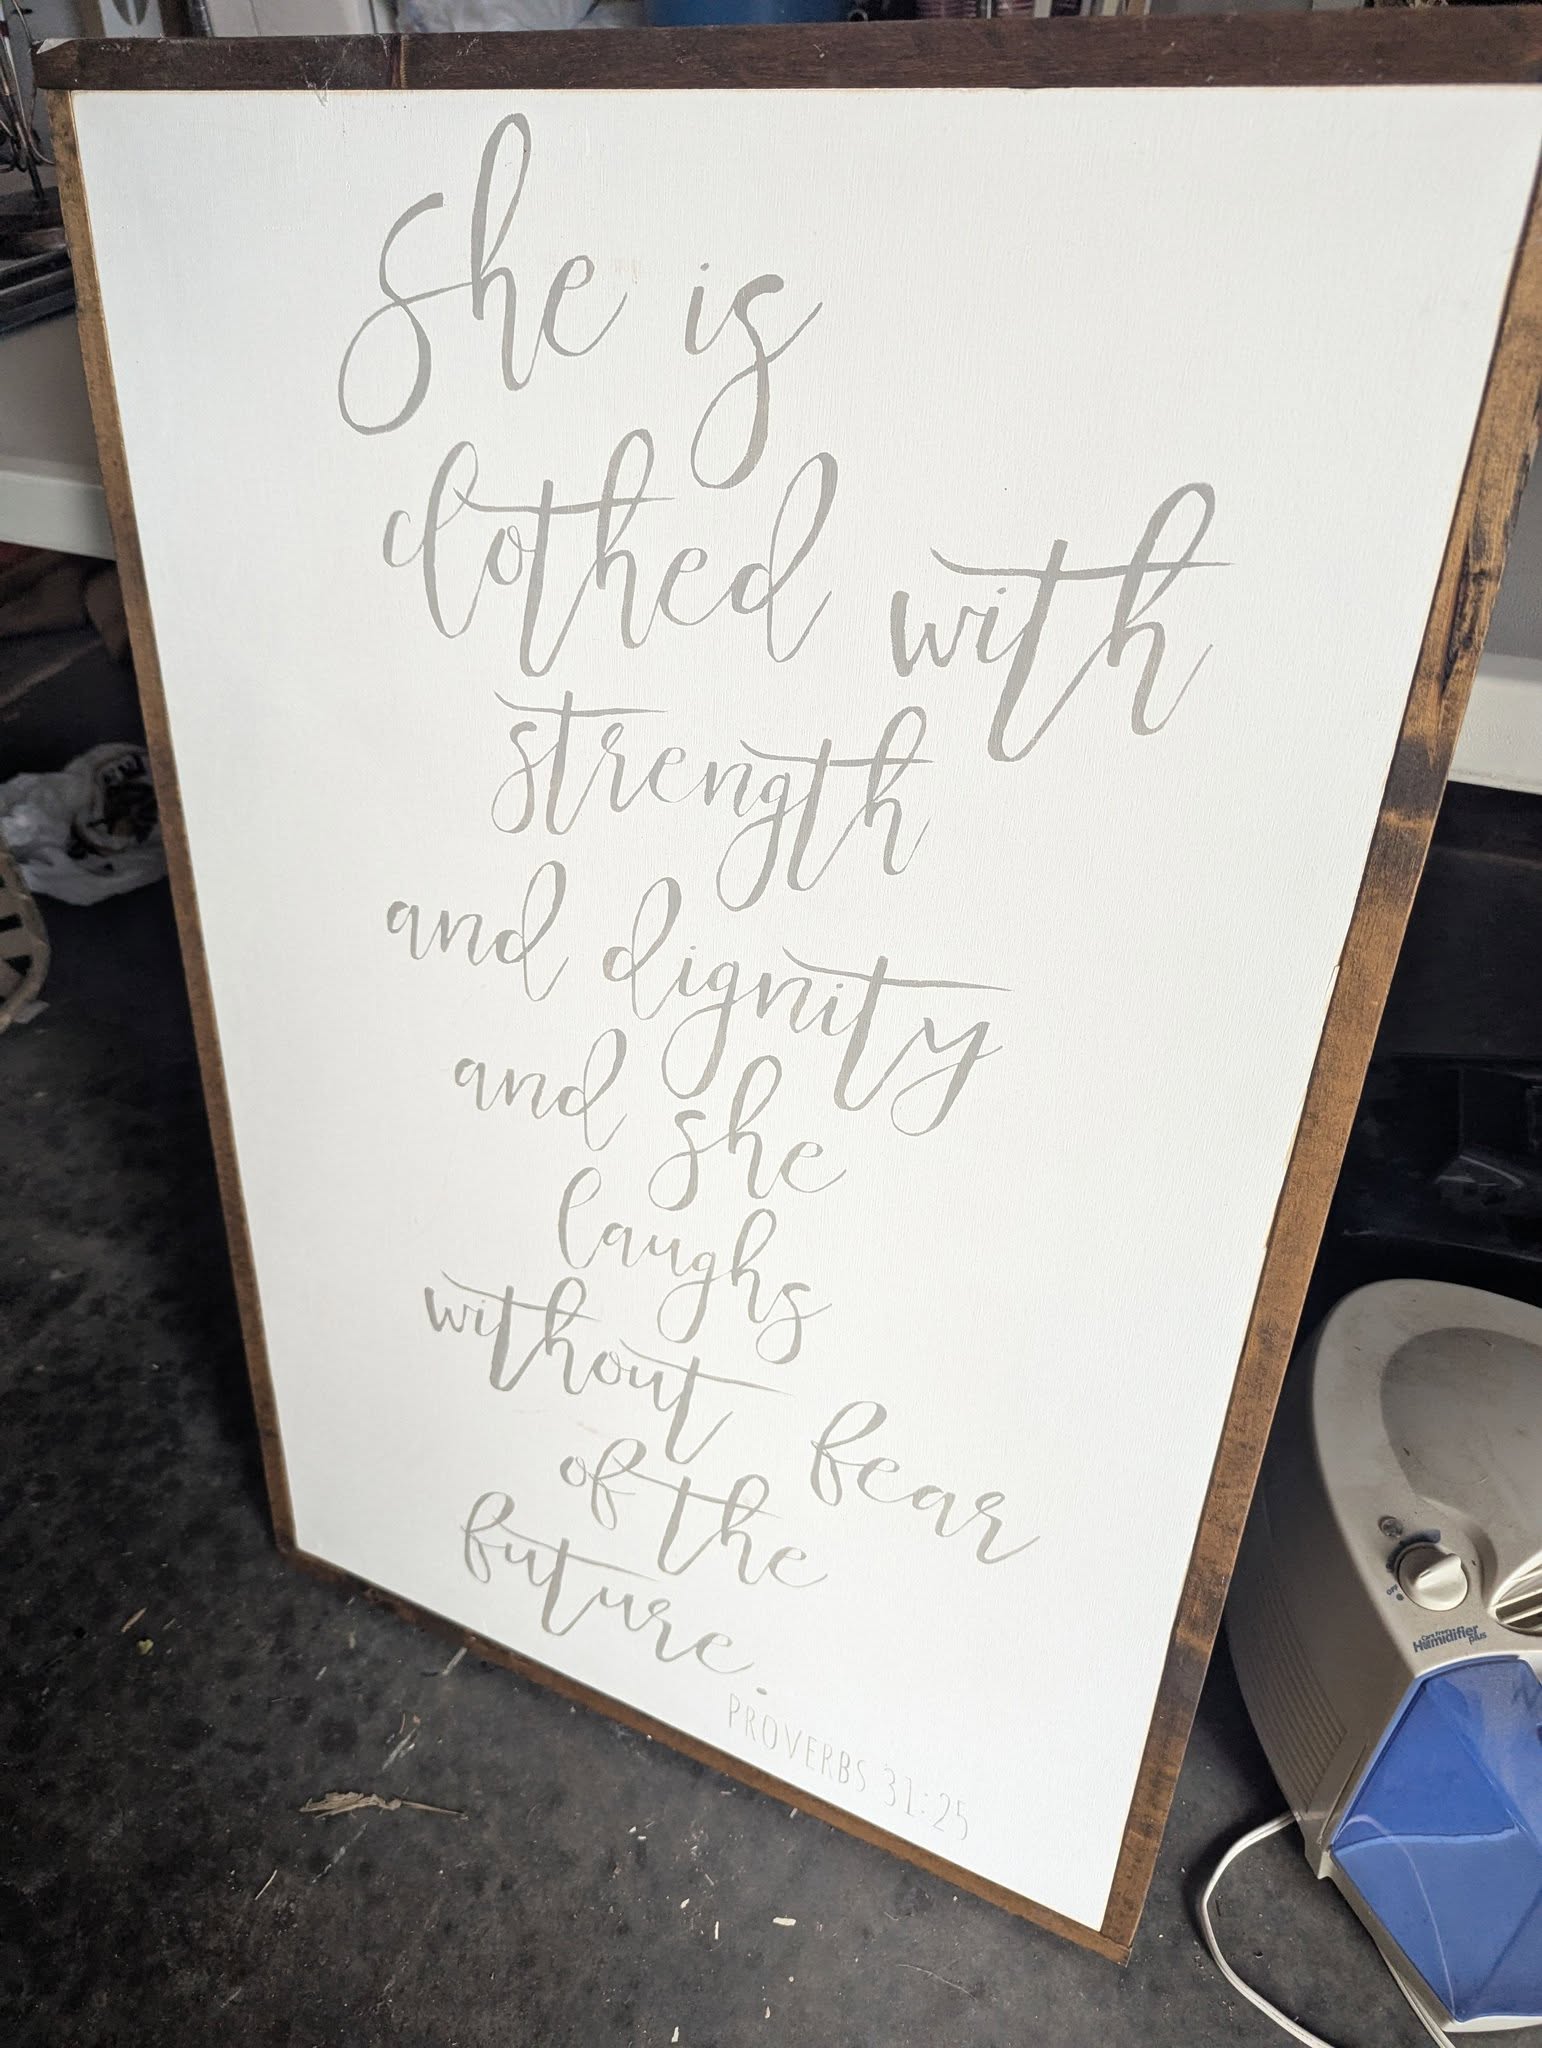 She is
clothed with
strength
and dignity
and she
laughs
without fear
of the
future.
PROVERBS 31:25
OFF
Care free
Humidifier
plus